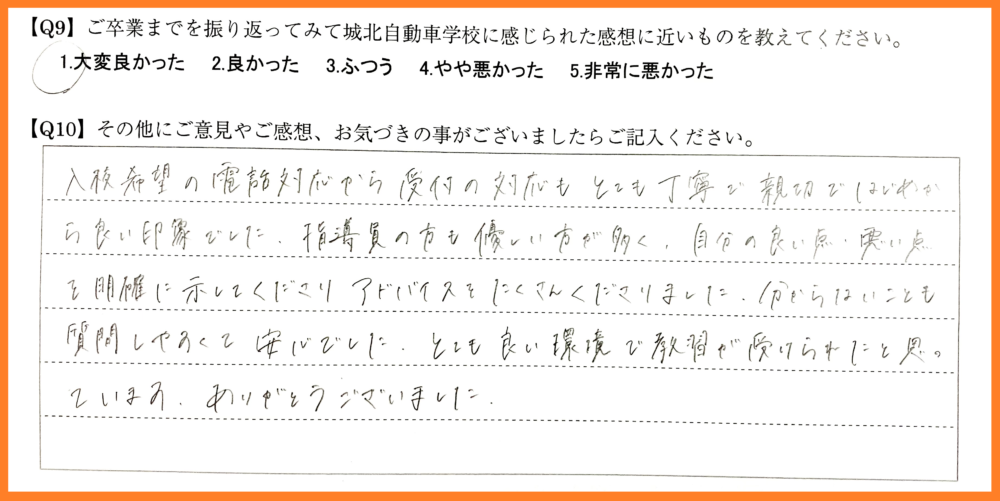 【Q9】ご卒業までを振り返ってみて城北自動車学校に感じられた感想に近いものを教えてください。
1.大変良かった 2.良かった 3.ふつう 4.やや悪かった 5.非常に悪かった
【Q10】その他にご意見やご感想、お気づきの事がございましたらご記入ください。
入校希望の電話対応から受付の対応もとても丁寧で親切ではじめか
ら良い印象でした。指導員の方も優しい方が多く、自分の良い点・悪い点
を明確に示してくださりアドバイスをたくさんくださりました。分からないことも
質問しやすくて安心でした。とても良い環境で教習が受けられたと思っ
ています。ありがとうございました。